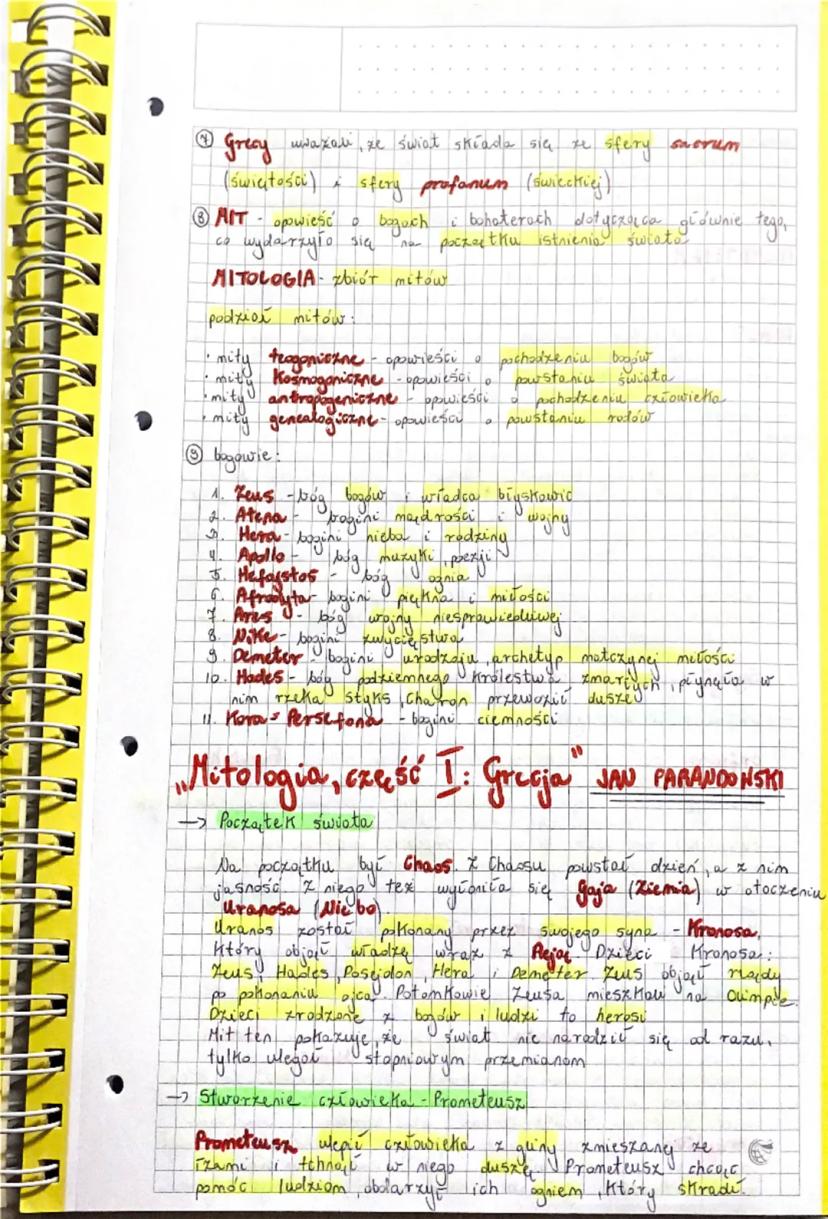 ⑦ Grecy uważali, że świat składa się ze sfery sacrum
(świętości) i sfery profanum (świeckiej)
⑧ MIT - opowieść o bogach i bohaterach dotycząca głównie tego,
co wydarzyło się na początku istnienia świata
MITOLOGIA - zbiór mitów
podział mitów:
• mity teogoniczne - opowieści o pochodzeniu bogów
• mity kosmogoniczne - opowieści o powstaniu świata
• mity antropogeniczne - opowieści o pochodzeniu człowieka
• mity genealogiczne - opowieści o powstaniu rodów
⑨ bogowie:
1. Zeus - bóg bogów i władca błyskawic
2. Atena - bogini mądrości i wojny
3. Hera - bogini nieba i rodziny
4. Apollo - bóg muzyki, poezji
5. Hefajstos - bóg ognia
6. Afrodyta - bogini piękna i miłości
7. Ares - bóg wojny niesprawiedliwej
8. Nike - bogini zwycięstwa
9. Demeter - bogini urodzaju, archetyp matczynej miłości
10. Hades - bóg podziemnego królestwa zmarłych, płynęła w
nim rzeka Styks, Charon przewoził dusze
11. Kora = Persefona - bogini ciemności
„Mitologia, część I: Grecja" JAN PARANDOWSKI
→ Początek świata
Na początku był Chaos. Z Chaosu powstał dzień, a z nim
jasność. Z niego też wyłoniła się Gaja (Ziemia) w otoczeniu
Uranosa (Niebo).
Uranos został pokonany przez swojego syna - Kronosa,
który objął władzę wraz z Reją. Dzieci Kronosa:
Zeus, Hades, Posejdon, Hera i Demeter. Zeus objął rządy
po pokonaniu ojca. Potomkowie Zeusa mieszkali na Olimpie.
Dzieci zrodzone z bogów i ludzi to herosi
Mit ten pokazuje, że świat nie narodził się od razu,
tylko ulegał stopniowym przemianom
→ Stworzenie człowieka - Prometeusz
Prometeusz ulepił człowieka z gliny zmieszanej ze
łzami i tchnął w niego duszę. Prometeusz chcąc
pomóc ludziom, obdarzył ich ogniem, który skradł.